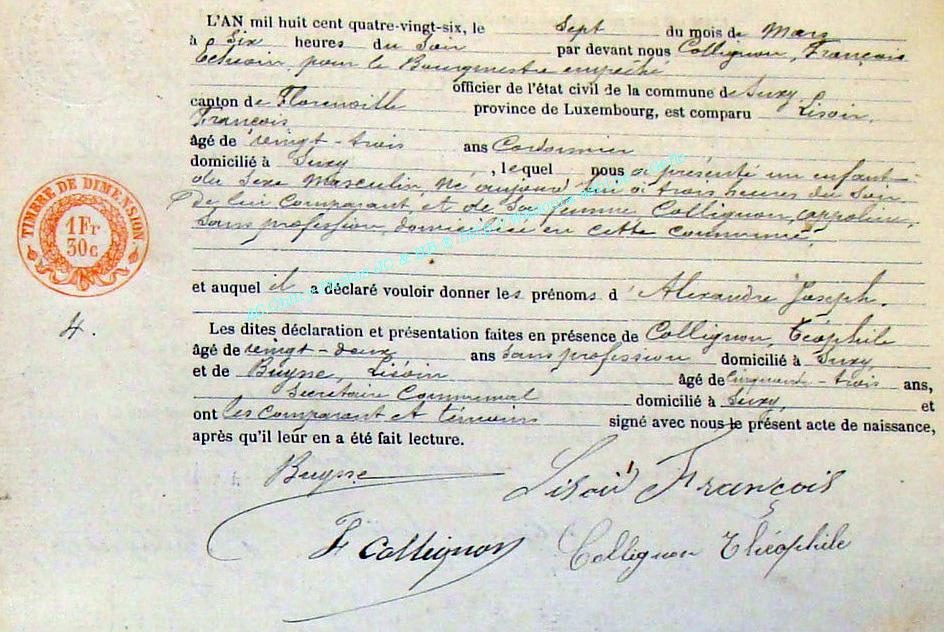 L'AN mil huit cent quatre-vingt-six, le Sept du mois de Mars
à Six heures du Soir par devant nous Collignon, François
Echevin, pour le Bourgmestre empêché
officier de l'état civil de la commune de Suxy
canton de Florenville province de Luxembourg, est comparu Lisoir,
François
âgé de vingt-trois ans Cordonnier
domicilié à Suxy, lequel nous a présenté un enfant
du Sexe Masculin, Né aujourd'hui à trois heures du Soir
De lui Comparant et de Sa femme Collignon, appoline,
Sans profession, domiciliée en cette Commune,
et auquel il a déclaré vouloir donner les prénoms d' Alexandre Joseph.
4.
Les dites déclaration et présentation faites en présence de Collignon, Téophile
âgé de vingt-deux ans Sans profession domicilié à Suxy
et de Buysse, Lisoin âgé de Cinquante-trois ans,
Secrétaire Communal domicilié à Suxy, et
ont les Comparant et témoins signé avec nous le présent acte de naissance,
après qu'il leur en a été fait lecture.
Buysse
Lisoir François
F Collignon
Collignon Théophile
TIMBRE DE DIMENSION
1 Fr
30 c